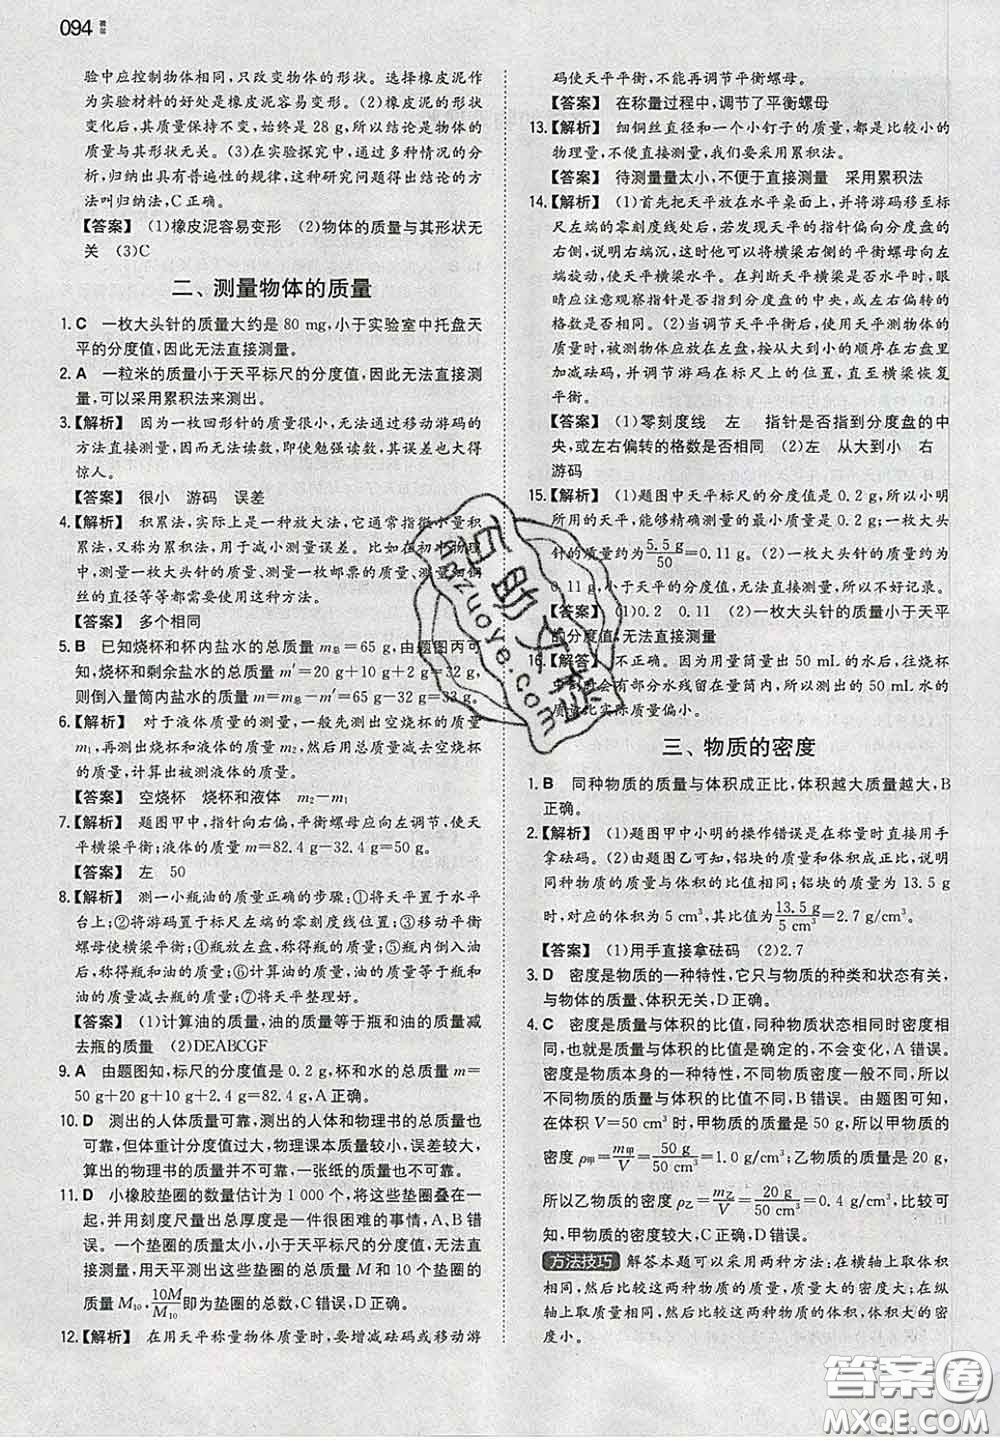 094
验中应控制物体相同,只改变物体的形状。选择橡皮泥作
为实验材料的好处是橡皮泥容易变形。(2)橡皮泥的形状
变化后,其质量保持不变,始终是 28 g,所以结论是物体的
质量与其形状无关。(3)在实验探究中,通过多种情况的分
析,归纳出具有普遍性的规律,这种研究问题得出结论的方
法叫归纳法,C 正确。
【答案】 (1)橡皮泥容易变形 (2)物体的质量与其形状无
关 (3)C
二、测量物体的质量
1. C 一枚大头针的质量大约是 80 mg,小于实验室中托盘天
平的分度值,因此无法直接测量。
2. A 一粒米的质量小于天平标尺的分度值,因此无法直接测
量,可以采用累积法来测出。
3.【解析】 因为一枚回形针的质量很小,无法通过移动游码的
方法直接测量,所以无法读数,即使勉强读数,其误差也大得
惊人。
【答案】 很小 游码 误差
4.【解析】 积累法,实际上是一种放大法,它通常指微小量积
累法,又称为累积法,用于减小测量误差。比如在初中物理
中,测量一枚大头针的质量、测量一枚邮票的质量、测量细铜
丝的直径等等都需要使用这种方法。
【答案】 多个相同
5. B 已知烧杯和杯内盐水的总质量 m总=65 g,由题图丙可
知,烧杯和剩余盐水的总质量 m′=20 g+10 g+2 g=32 g,
则倒入量筒内盐水的质量 m=m总-m′=65 g-32 g=33 g。
6.【解析】 对于液体质量的测量,一般先测出空烧杯的质量
m₁,再测出烧杯和液体的质量 m₂,然后用总质量减去空烧杯的
质量,计算出被测液体的质量。
【答案】 空烧杯 烧杯和液体 m₂-m₁
7.【解析】 题图甲中,指针向右偏,平衡螺母应向左调节,使天
平横梁平衡;水的质量 m=82.4 g-32.4 g=50 g。
【答案】 左 50
8.【解析】 测一小瓶油的质量正确的步骤:①将天平置于水平
台上;②将游码置于标尺左端的零刻度线位置;③移动平衡
螺母使横梁平衡;④瓶放左盘,称得瓶的质量;⑤瓶内装油
后,称得瓶和油的质量;⑥计算油的质量,用瓶和油的质量
的质量减去瓶的质量;⑦将天平整理好。
【答案】 (1)计算油的质量,油的质量等于瓶和油的质量减
去瓶的质量 (2)DEABCGF
9. A 由题图知,标尺的分度值是 0.2 g,杯和水的总质量 m=
50 g+20 g+10 g+2.4 g=82.4 g,A 正确。
10. D 测出的人体质量可靠,测出的人体和物理书的总质量也
可靠,但体重计分度值过大,物理课本质量较小,误差较大,
算出的物理书的质量并不可靠,一张纸的质量也不可靠。
11. D 小橡胶垫圈的数量估计为 1 000 个,将这些垫圈叠在一
起,并用刻度尺量出总厚度是一件很困难的事情,A、B 错
误。一个垫圈的质量太小,小于天平标尺的分度值,无法直
接测量,用天平测出这些垫圈的总质量 M 和 10 个垫圈的
质量 M₁₀,10M/M₁₀ 即为垫圈的总数,C 错误,D 正确。
12.【解析】 在用天平称量物体质量时,要增减砝码或移动游
码使天平平衡,不能再调节平衡螺母。
【答案】 在称量过程中,调节了平衡螺母
13.【解析】 细铜丝直径和一个小钉子的质量,都是比较小的
物理量,不便直接测量,我们要采用累积法。
【答案】 待测量量太小,不便于直接测量 采用累积法
14.【解析】 (1)首先把天平放在水平桌面上,并将游码移至标
尺左端的零刻度线处后,若发现天平的指针偏向分度盘中
央的左侧,说明右端沉,这时他可以将横梁右侧的平衡螺母向左
端旋动,使天平横梁水平。在判断天平横梁是否水平时,眼
睛应注意观察指针是否指到分度盘的中央,或左右偏转的
格数是否相同。(2)当调节天平平衡后,使用天平测物体的
质量时,被测物体应放在左盘,按从大到小的顺序在右盘里
加减砝码,并调节游码在标尺上的位置,直至横梁恢复平
衡。
【答案】 (1)零刻度线 左 指针是否指到分度盘的中
央,或左右偏转的格数是否相同 (2)左 从大到小 右
游码
15.【解析】 (1)题图中天平标尺的分度值是 0.2 g,所以小明
所用的天平,能够精确测量的最小质量是 0.2 g;一枚大头
针的质量约为 5.5 g/50=0.11 g。(2)一枚大头针的质量约为
0.11 g,小于天平的分度值,无法直接测量,所以不好记录。
【答案】 (1)0.2 0.11 (2)一枚大头针的质量小于天平
的分度值,无法直接测量
16.【解答】 不正确。因为用量筒量出 50 mL 的水后,往烧杯
中倒会有部分水残留在量筒内,所以测出的 50 mL 水的
质量比实际质量偏小。
三、物质的密度
1. B 同种物质的质量与体积成正比,体积越大质量越大,B
正确。
2.【解析】 (1)题图甲中小明的操作错误是在称量时直接用手
拿砝码。(2)由题图乙可知,铝块的质量和体积成正比,说明
同种物质的质量与体积的比值是相同的,铝块的质量为 13.5 g
时,对应的体积为 5 cm³,其比值为 13.5 g/5 cm³=2.7 g/cm³。
【答案】 (1)用手直接拿砝码 (2)2.7
3. D 密度是物质的一种特性,它只与物质的种类和状态有关,
与物体的质量、体积无关,D 正确。
4. C 密度是质量与体积的比值,同种物质状态相同时密度相
同,也就是质量与体积的比值是确定的,不会变化,A 错误。
密度是物质本身的一种特性,不同物质密度一般不同,所以
不同物质的质量与体积的比值不同,B 错误。由题图可知,
当体积都为 50 cm³ 时,甲物质的质量是 50 g,所以甲物质的
密度 ρ甲=m甲/V=50 g/50 cm³=1.0 g/cm³;乙物质的质量是 20 g,
所以乙物质的密度 ρ乙=m乙/V=20 g/50 cm³=0.4 g/cm³,比较可
知,甲物质的密度较大,C 正确,D 错误。
方法技巧 解答本题可以采用两种方法:在横轴上取体积
相同,然后比较这两种物质的质量,质量大的密度大;在纵
轴上取质量相同,然后比较这两种物质的体积,体积大的密
度小。
答案圈
MXQE.COM